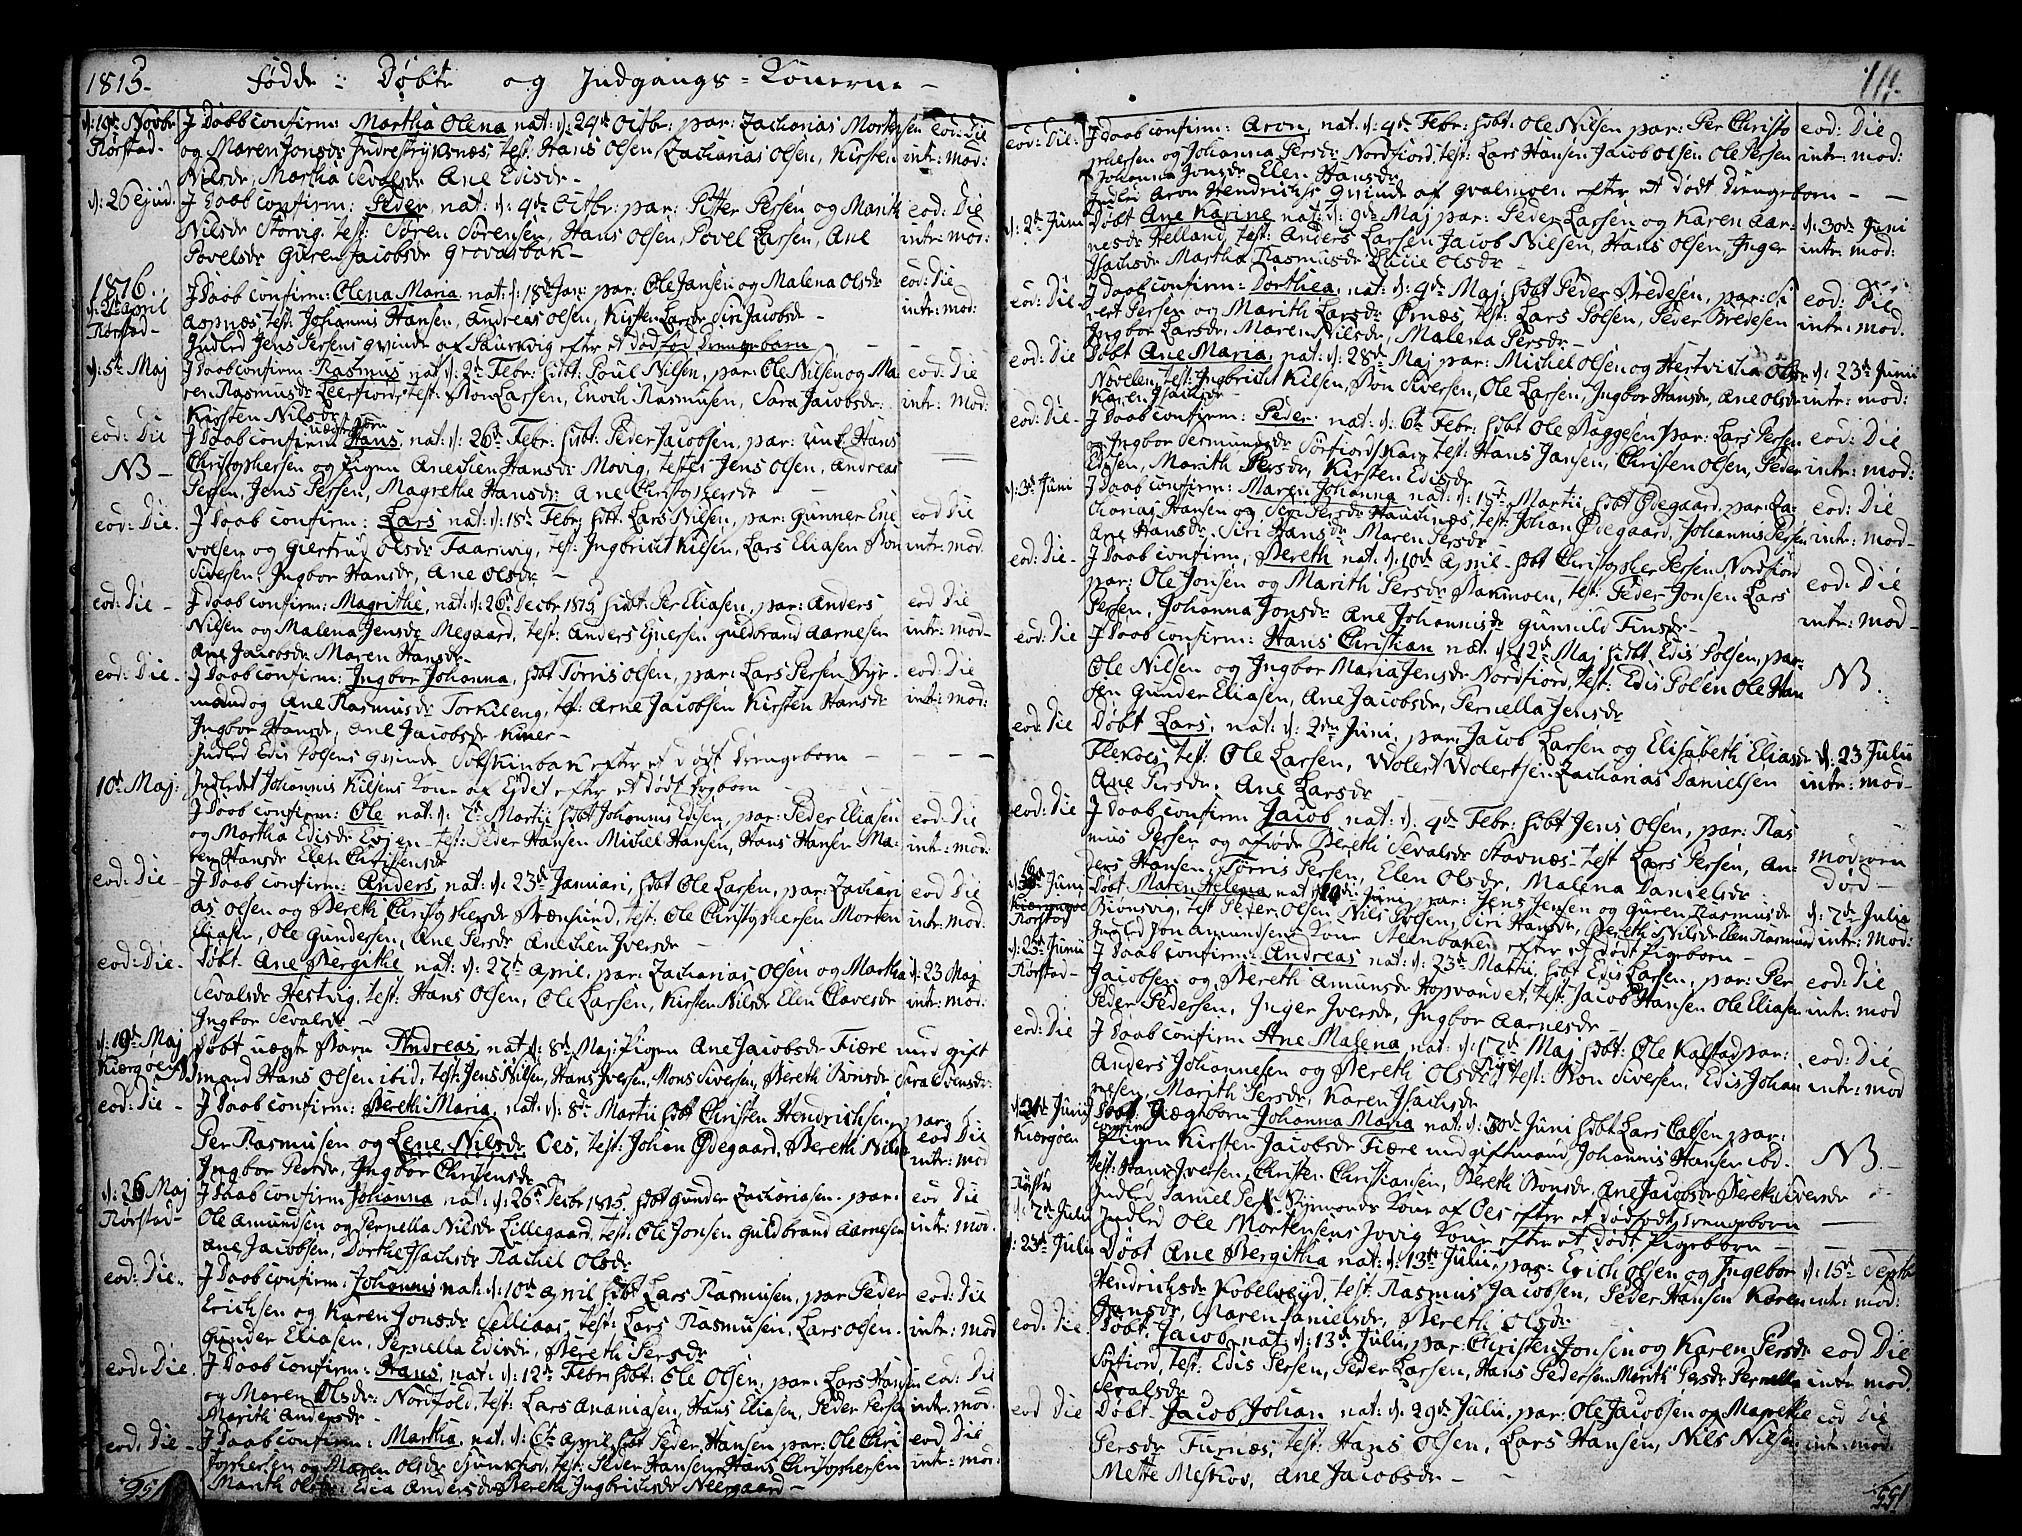 1815. Fødde: Døbte og Indgangs-Konerne -
d: 19de Novbr J Daab confirm: Martha Olena nat: d: 24de Octbr: par: Zacharias Morten
Rørstad - og Maren Jonsdr Indrestrixnæs, test: Hans Olsen, Zacharias Olsen, Kirsten sen eod: Die
Nilsdr, Martha Sevalsdr Ane Edisdr - intr: mod:
d: 26 ejud. J Daab confirm: Peder nat: d: 4de Octbr: par: Pitter Persen og Marith eod: Die
Nilsdr Storvig, test: Søren Sørensen, Hans Olsen, Povel Larsen, Ane intr: mod:
Povelsdr Guren Jacobsdr Grovasbak -
1816. J Daab confirm: Olena Maria nat: d: 18de Jan: par: Ole Jansen og Malena Olsdr eod: Die
April Aspnæs, test: Johannis Hansen, Andreas Olsen, Kirsten Larsdr Siri Jacobsdr - intr: mod:
Rørstad - Indled Jens Persens Qvinde af efter et dødfød Drengebarn - - -
d: 5te Maj J Daab confirm: Rasmus nat: d: 2de Febr: hdbt: Poul Nilsen, par: Ole Nilsen og Ma- eod: Die
ren Rasmusdr Leerfiord, test: Bon Larsen, Enoch Rasmusen, Sara Jacobsdr: intr: mod:
Kirsten Nilsdr
uægte barn
eod: Die J Daab confirm: Hans nat: d: 26de Febr: hdbt: Peder Jacobsen, par: Hans
NB - Christophersen og Pigen Anechen Hansdr Movig, testes Jens Olsen, Andreas
Persen, Jens Persen, Magrethe Hansdr: Ane Christophersdr -
eod: Die. J Daab confirm: Lars nat: d: 18de Febr: hdbt: Lars Nilsen, par: Gunner Ene eod Die
volsen og Giertrud Olsdr Taarnvig, test: Ingbricht Kilsen, Lars Eliasen Bon intr: mod.
Siversen, Ingbor Hansdr, Ane Olsdr -
eod: Die - J Daab confirm: Magrithe, nat: d: 26de Decbr 1815 hdbt: Per Eliasen, par: Anders eod Die
Nilsen og Malena Jensdr Megaard, test: Anders Ejnersen Guldbrand Aarnesen intr: mod -
Ane Jacobsdr Maren Hansdr -
eod: Die. J Daab confirm: Ingbor Johanna, hdbt Torris Olsen, par: Lars Persen Styr- eod: Die
mand og Ane Rasmusdr Torkileng, test: Arne Jacobsen Kirsten Hansdr intr: mod:
Ingbor Hansdr, Ane Jacobsdr -
Indled Edis Polsens Qvinde Solskinbak efter et dødt Drengebarn - - -
10de Maj: Indledet Johannis Kilsens Kone af Ejdet efter et dødt Pigebarn - - -
J Daab confirm: Ole nat: d: 7de Martii hdbt Johannis Edisen, par: Peder Eliasen eod: Die
og Martha Edisdr Evjen - test: Peder Hansen Michel Hansen, Hans Hansen Ma- intr: mod:
ren Hansdr Elen Christensdr
eod: Die - J Daab confirm: Anders, nat: d: 23de Januari, hdbt Ole Larsen, par: Zachari eod Die
as Olsen og Bereth Christophersdr Brænsund, test: Ole Christophersen Morten intr: mod:
Eliasen, Ole Gundersen, Ane Persdr Anechen Iversdr -
eod: Die. Døbt Ane Bergithe nat: d: 27de April, par: Zacharias Olsen og Martha d: 23 Maj
Sevalsdr Hestvig, test: Hans Olsen, Ole Larsen, Kirsten Nilsdr Elen Clavesdr intr: mod:
Ingbor Sevalsdr -
d: 19de Maj Døbt uægte Barn Andreas, nat d: 8de Maj: Pigen Ane Jacobsdr Fiære med gift
Kiærgøen mand Hans Olsen ibid, test: Jens Nilsen, Hans Iversen, Mons Siversen, Bereth Bonsdr Sara Svensdr.
eod: Die - J Daab confirm: Bereth Maria, nat: d: 8de Martii hdbt Christen Hendrichsen, par:
Per Rasmusen og Lene Nilsdr Oes, test: Johan Ødegaard, Bereth Nilsdr eod Die
Ingbor Persdr, Ingbor Christensdr intr: mod
d: 26 Maj J Daab confirm Johanna nat: d: 26de Decbr 1815. hdbt Gunder Zachariasen. par: eod Die
Rørstad - Ole Amundsen og Pernella Nilsdr Lillegaard, test: Ole Jonsen Guldbrand Aarnesen intr: mod.
Ane Jacobsen, Dorthe Isachsdr Rachel Olsdr
eod: Die. J Daab confirm: Johannis nat: d: 10de April hdbt Lars Rasmusen, par Peder eod: Die
Erichsen og Karen Jonsdr Selliaas, test: Lars Rasmusen, Lars Olsen - intr: mod
Gunder Eliasen, Pernella Edisdr, Bereth Persdr
eod: Die. J Daab confirm: Hans, nat: d: 12te Febr: hdbt: Ole Olsen, par: Lars Hansen eod: Die
og Maren Olsdr: Nordfold, test: Lars Ananiasen, Hans Eliasen, Peder Persen intr: mod.
Marith Andersdr -
eod: Die - J Daab confirm: Martha, nat: d: 6te April hdbt Peder Hansen par: Ole Chri eod Die
stophersen og Maren Olsdr, test: Peder Hansen Hans Christophersen intr: mod:
Marith Olsdr: Edia Andersdr Bereth Ingbrichsdr Neergaard -
111.
eod: Die: J Daab confirm: Aron, nat: d: 4de Febr: hdbt: Ole Nilsen par: Per Christo eod: Die
phersen og Johanna Persdr Nordfiord, test: Lars Hansen Jacob Olsen Ole Persen intr: mod:
Johanna Jonsdr Elen Hansdr
Indled Aron Hendrichs Qvinde af Qvalmoen efter et dødt Drengebarn - -
d: 2de Juni Døbt Ane Karine nat: d: 9de Maj par: Peder Larsen og Karen Aar- d: 30de Juni
nesdr Helland, test: Anders Larsen Jacob Nilsen, Hans Olsen, Inger intr: mod:
Isachsdr Martha Rasmusdr Lucie Olsdr -
eod: Die - J Daab confirm: Dorthea, nat: d: 4de Maj: hdbt Peder Bredesen, par: Si eod: Die
vert Persen og Marith Larsdr Ørnæs, test: Lars Polsen, Peder Bredesen intr: mod:
Ingbor Larsdr. Maren Nilsdr, Malena Persdr -
eod: Die Døbt Ane Maria, nat: d: 28de Maj par: Michel Olsen og Hestvicha Olsdr d: 23de Junii
Novelen, test: Ingbricht Kilsen, Bon Siversen, Ole Larsen, Ingbor Hansdr, Ane Olsdr intr: mod:
Karen Isachsdr -
eod: Die - J Daab confirm: Peder nat: d: 6te Febr: hdbt Ole Baggesen par: Lars Persen eod: Die
og Ingbor Germundsdr Sørfiordskar, test: Hans Jansen, Christen Olsen, Peder intr: mod:
Edisen, Marith Persdr, Kirsten Edisdr
d: 3de Juni J Daab confirm: Maren Johanna nat: d: 15de Martii hdbt Ødegaard, par: Za- eod: Die
charias Hansen og Siri Persdr, test: Johan Ødegaard, Johannis Persen intr: mod -
Ane Hansdr. Siri Hansdr Maren Persdr
eod: Die - J Daab confirm, Bereth nat: d: 10de April - hdbt Christopher Persen Nordfiord
par: Ole Jonsen og Marith Persdr Bakmoen, test: Peder Jonsen Lars eod: Die
Persen, Johanna Jonsdr Ane Johannisdr Gunnild Finsdr - intr: mod -
eod: Die J Daab confirm: Hans Christian nat: d: 12te Maj hdbt Edis Polsen, par:
Ole Nilsen og Ingbor Maria Jensdr Nordfiord, test: Edis Polsen Ole Han NB.
sen Gunder Eliasen, Ane Jacobsdr, Pernella Jensdr
eod: Die Døbt Lars, nat: d: 2den Juni, par: Jacob Larsen og Elisabeth Eliasdr d: 23 Julii
Flekoes, test: Ole Larsen, Wolert Wolertsen Zacharias Danielsen intr: mod -
Ane Persdr, Ane Larsdr
eod: Die J Daab confirm Jacob nat: d: 4de Febr: hdbt Jens Olsen, par: Ras
mus Persen og afdøde Bereth Sevalsdr Stavnæs - test Lars Persen, An- Moderen
ders Hansen, Torris Persen, Elen Olsdr, Malena Danielsdr død -
d: 16de Juni Døbt Maren Helena nat: d: 10de Juni, par: Jens Jensen og Guren Rasmusdr d: 7de Julia
Rørstad Biørnsvig, test Peder Olsen Nils Polsen, Siri Hansdr, Bereth Nilsdr Elen Rasmusd intr: mod:
Indled Jon Amundsens Kone Steenbaken efter et dødt Pigebarn -
d: 23de Junii J Daab confirm: Andreas nat: d: 23de Martii, hdbt Edis Larsen, par: Per eod: Die
Rørstad - Jacobsen og Bereth Amunsdr Hopvandet, test: Jacob Hansen Ole Eliasen intr: mod
Peder Pedersen, Inger Iversdr, Ingbor Aarnesdr -
eod: Die J Daab confirm Ane Malena nat: d: 17de Maj hdbt: Ole Kalstad par: eod: Die
Anders Johannesen og Bereth Olsdr, test: Bon Siversen, Edis Johan intr: mod
nesen, Marith Persdr, Karen Isachsdr
Juni Døbt Uægte barn Johanna Maria nat: d: 30de Juni hdbt Lars Calsen par:
Kiærgøen confirm Pigen Kirsten Jacobsdr Fiære med giftmand Johannis Hansen ibd. NB. -
test: Hans Iversen, Christen Christiansen, Bereth Bonsdr. Ane Jacobsdr Bereth Siversdr
Indled Daniel Kone af Oes efter et dødfødt Drengebarn -
d: 7de Julii Indled Ole Mortensens Kone efter et dødt Pigebarn -
d: 23de Julii Døbt Ane Bergitha nat: d: 13de Julii, par: Erich Olsen og Ingebor d: 15de Septb
Hendrichsdr Kobelvejd, test: Rasmus Jacobsen, Peder Hansen Karen intr: mod:
Hansdr, Maren Danielsdr, Bereth Olsdr
eod: Die. Døbt Jacob, nat: d: 13de Julii, par: Christen Jonsen og Karen Persdr eod Die
Sørfiord, test: Edis Persen, Peder Larsen, Hans Pedersen Marith Persdr Pernella intr: mod.
Sevalsdr
eod Die Døbt Jacob Johan nat: d. 29de Julii, par: Ole Jacobsen og Magrethe eod Die
Persdr Furnæs, test: Hans Olsen, Lars Hansen, Nils Nilsen intr: mod:
Mette, Ane Jacobsdr - -